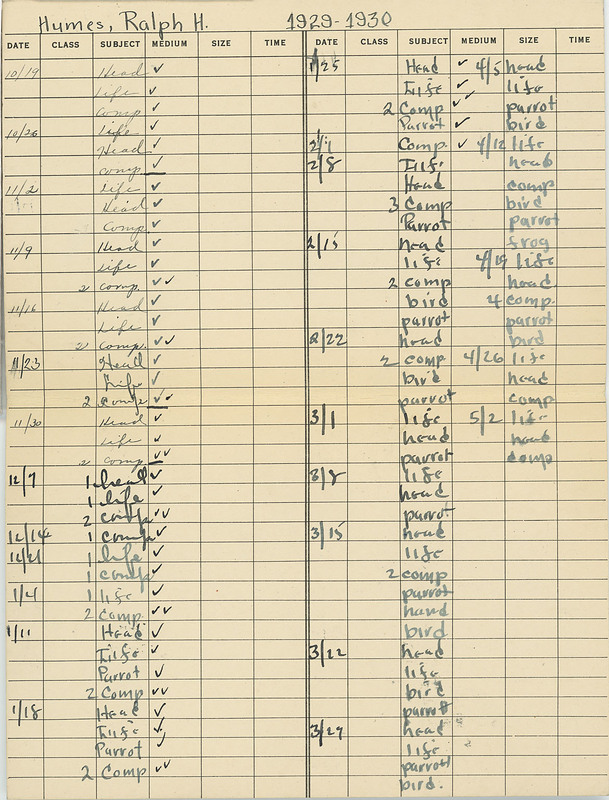 Humes, Ralph H. 1929-1930
DATE CLASS SUBJECT MEDIUM SIZE TIME DATE CLASS SUBJECT MEDIUM SIZE TIME
10/19 Head ✓
Life ✓
Comp ✓
10/26 Life ✓
Head ✓
comp ✓
11/2 Life ✓
Head ✓
Comp ✓
11/9 Head ✓
Life ✓
2 Comp. ✓✓
11/16 Head ✓
Life ✓
2 Comp. ✓✓
11/23 Head ✓
Life ✓
2 Comp ✓✓
11/30 Head ✓
Life ✓
2 Comp ✓✓
12/7 1 head ✓
1 life ✓
2 comp ✓✓
12/14 1 comp ✓
12/21 1 life ✓
1 comp ✓
1/4 1 life ✓
2 Comp. ✓✓
1/11 Head ✓
Life ✓
Parrot ✓
2 Comp ✓✓
1/18 Head ✓
Life ✓
Parrot ✓
2 Comp ✓✓
1/25 Head ✓
Life ✓
2 Comp ✓✓
Parrot ✓
2/1 Comp. ✓
2/8 Life
Head
3 Comp
Parrot
2/15 head
life
2 comp
bird
parrot
2/22 head
2 comp
bird
parrot
3/1 life
head
parrot
3/8 life
head
parrot
3/15 head
life
2 comp
parrot
hand
bird
3/22 head
life
bird
parrot
3/29 head
life
parrot
bird.
4/5 head
life
parrot
bird
4/12 life
head
comp
bird
parrot
frog
4/19 life
head
4 comp.
parrot
bird
4/26 life
head
comp
5/2 life
head
comp